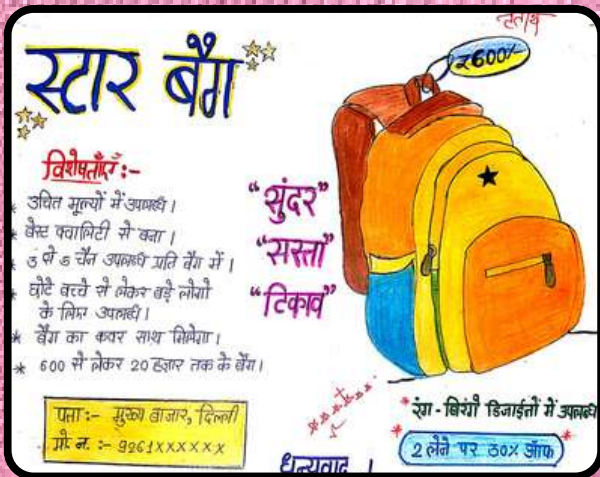 स्टार बैग
₹600/-
विशेषताएँ:-
* उचित मूल्यों में उपलब्ध।
* बेस्ट क्वालिटी से बना।
* 5 से 6 चैन उपलब्ध प्रति बैग में।
* छोटे बच्चे से लेकर बड़े लोगो
के लिए उपलब्ध।
* बैग का कवर साथ मिलेगा।
* 600 से लेकर 20 हज़ार तक के बैग।
"सुंदर"
"सस्ता"
"टिकाव"
पता:- मुख्य बाजार, दिल्ली
मो. न. :- 9261XXXXXX
* रंग-बिरंगे डिजाईनों में उपलब्ध
* 2 लेने पर 30% ऑफ *
धन्यवाद।